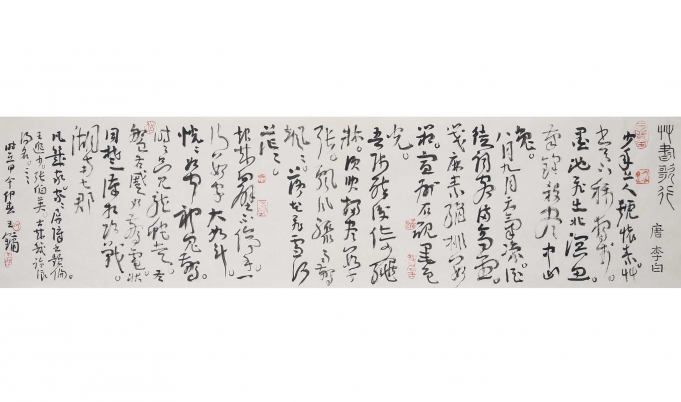 艸書歌行
唐 李白
少年上人號懷素艸
書天下稱獨步
墨池飛出北溟魚
筆鋒殺盡中山
兔
八月九月天氣涼酒
徒詞客滿高堂
箋麻素絹排數
箱宣州石硯墨色
光
吾師醉後倚繩
牀須臾掃盡數千
張飄風驟雨驚
颯々落花飛雪何
茫々
起來向壁不停手一
行數字大如斗
怳々如聞神鬼驚
時々只見龍蛇走左
盤右蹙如驚電狀
同楚漢相攻戰
湖南七郡
凡幾家家々屏障書題徧
王逸少張伯英古來幾許浪
得名
王鏞